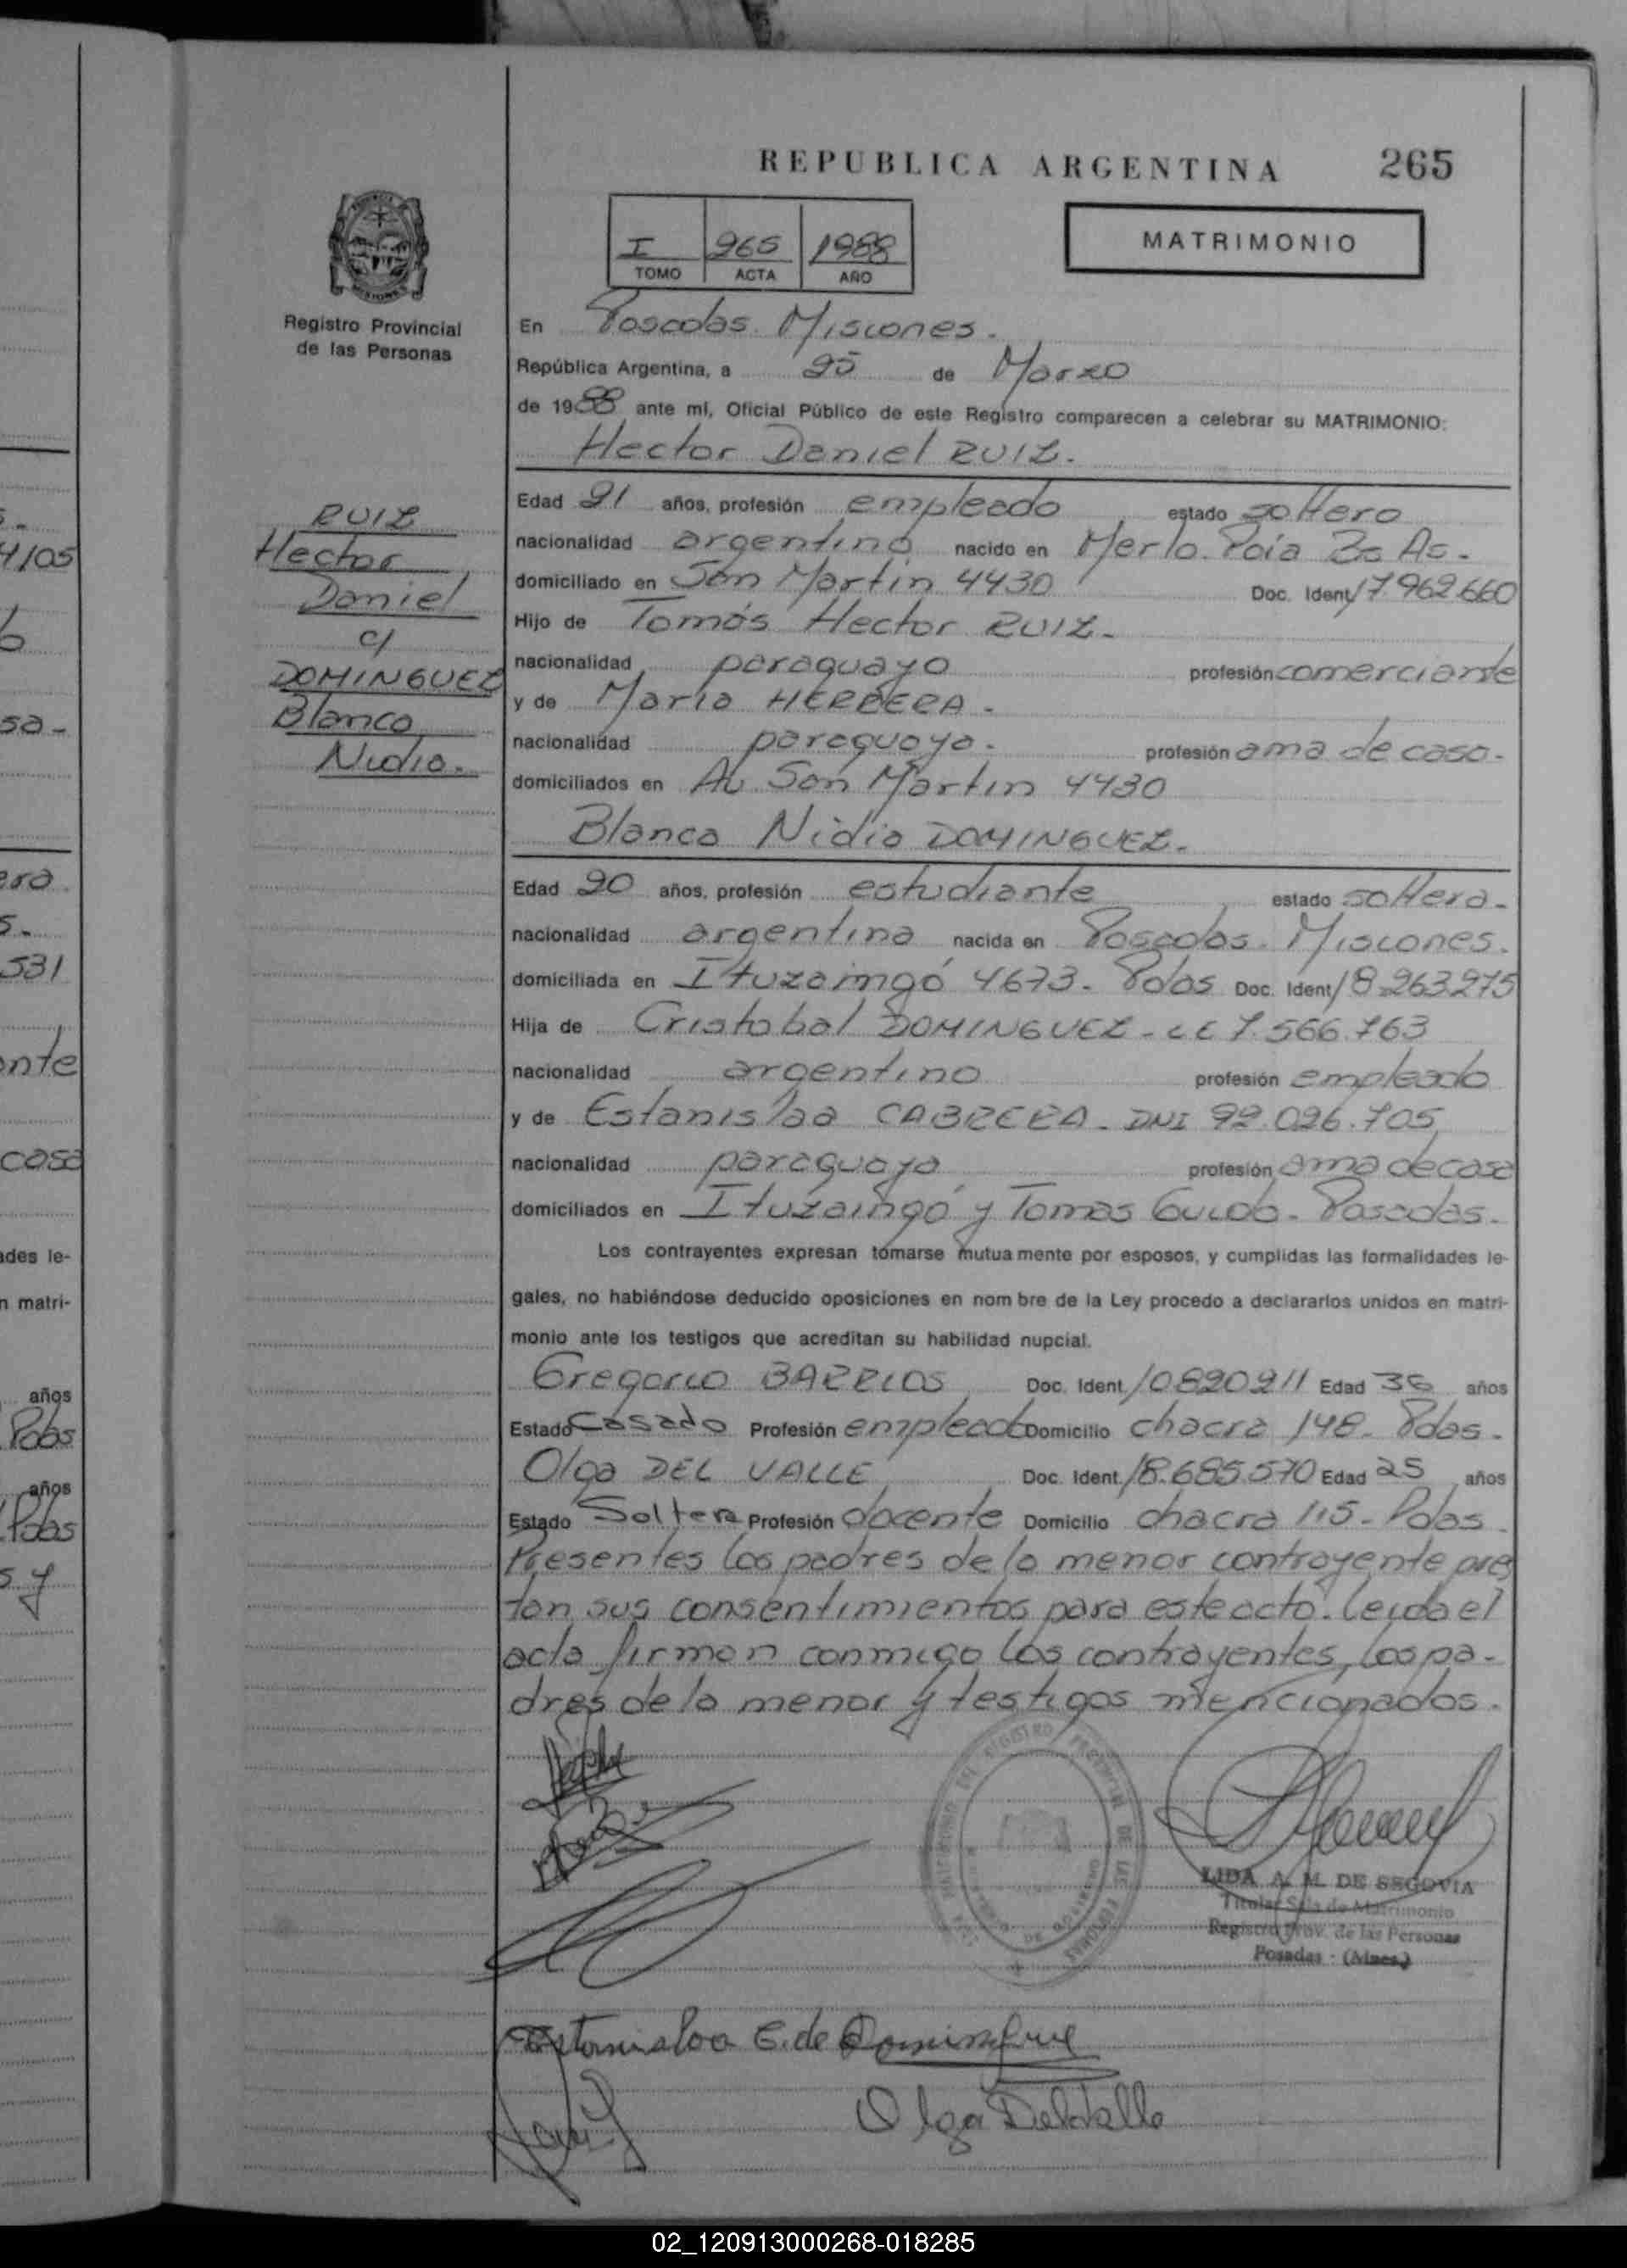 REPUBLICA ARGENTINA 265
I 265 1988
TOMO ACTA AÑO
MATRIMONIO
MISIONES
Registro Provincial
de las Personas
En Posadas. Misiones.
República Argentina, a 25 de Marzo
de 1988 ante mí, Oficial Público de este Registro comparecen a celebrar su MATRIMONIO:
Hector Daniel RUIZ.
RUIZ
Hector
Daniel
c/
DOMINGUEZ
Blanca
Nidia.
Edad 21 años, profesión empleado estado soltero
nacionalidad argentino nacido en Merlo. Pcia Bs As.
domiciliado en San Martin 4430 Doc. Ident 17.962.660
Hijo de Tomás Hector RUIZ.
nacionalidad paraguayo profesión comerciante
y de María HERRERA.
nacionalidad paraguaya. profesión ama de casa.
domiciliados en Av. San Martin 4430
Blanca Nidia DOMINGUEZ.
Edad 20 años, profesión estudiante estado soltera.
nacionalidad argentina nacida en Posadas. Misiones.
domiciliada en Ituzaingó 4673. Pdas Doc. Ident 18.263.275
Hija de Cristobal DOMINGUEZ - LE 7.566.763
nacionalidad argentino profesión empleado
y de Estanislaa CABRERA. DNI 92.026.705
nacionalidad paraguaya profesión ama de casa
domiciliados en Ituzaingó y Tomas Guido. Posadas.
Los contrayentes expresan tomarse mutuamente por esposos, y cumplidas las formalidades le-
gales, no habiéndose deducido oposiciones en nombre de la Ley procedo a declararlos unidos en matri-
monio ante los testigos que acreditan su habilidad nupcial.
Gregorio BARRIOS Doc. Ident 10820211 Edad 36 años
Estado Casado Profesión empleado Domicilio chacra 148. Pdas.
Olga DEL VALLE Doc. Ident. 18.685.570 Edad 25 años
Estado Soltera Profesión docente Domicilio chacra 115. Pdas.
Presentes los padres de la menor contrayente pres
tan sus consentimientos para este acto. Leida el
acta firman conmigo los contrayentes, los pa-
dres de la menor y testigos mencionados.
LIDA A. M. DE SEGOVIA
Titular Sala de Matrimonio
Registro Prov. de las Personas
Posadas - (Mnes.)
Estanislaa C. de Dominguez
Olga Del Valle
02_120913000268-018285